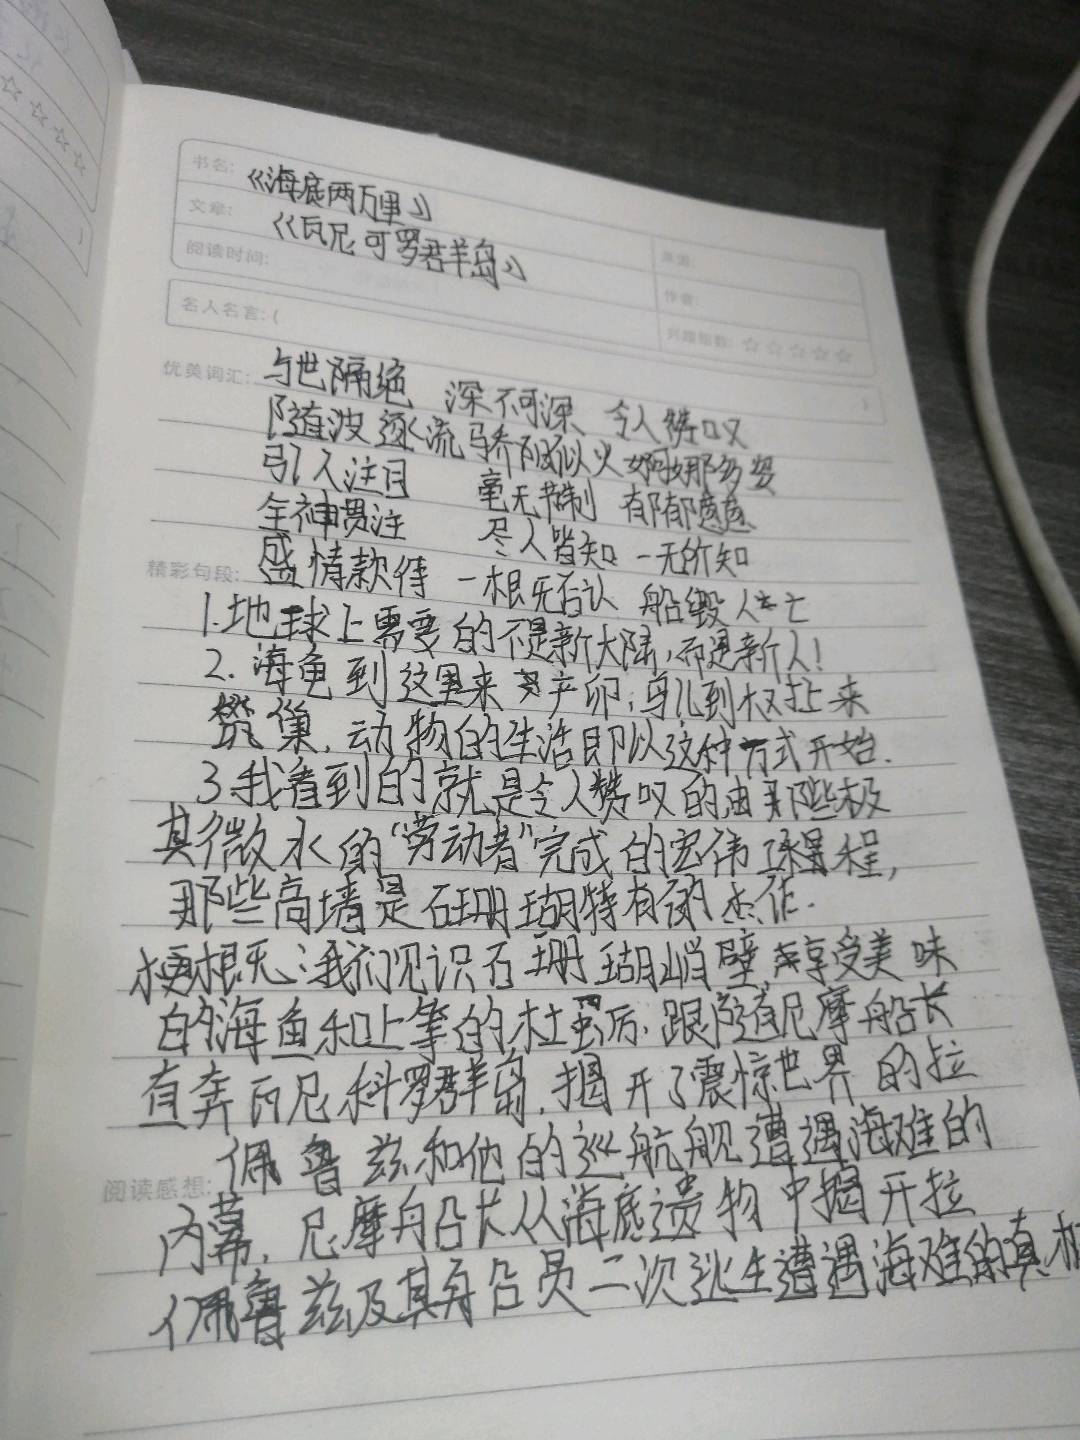 书名: 《海底两万里》
文章: 《瓦尼可罗群岛》
阅读时间:
来源:
作者:
兴趣指数: ☆☆☆☆☆
名人名言: (
)
优美词汇: 与世隔绝 深不可深 令人赞叹
随波逐流 骄阳似火 婀娜多姿
引人注目 毫无节制 郁郁葱葱
全神贯注 尽人皆知 一无所知
盛情款待 一概否认 船毁人亡
精彩句段:
1.地球上需要的不是新大陆,而是新人!
2.海龟到这里来产卵;鸟儿到权址来
筑巢,动物的生活即以这种方式开始.
3.我看到的就是令人赞叹的由那些极
其微水的“劳动者”完成的宏伟工程,
那些高墙是石珊瑚特有的杰作.
梗概:我们见识石珊瑚峭壁,享受美味
的海鱼和上等的牡蛎.跟随尼摩船长
直奔瓦尼科罗群岛,揭开了震惊世界的拉
佩鲁兹和他的巡航舰遭遇海难的
阅读感想:
内幕,尼摩船长从海底遗物中揭开拉
佩鲁兹及其船员二次逃生遭遇海难的真相